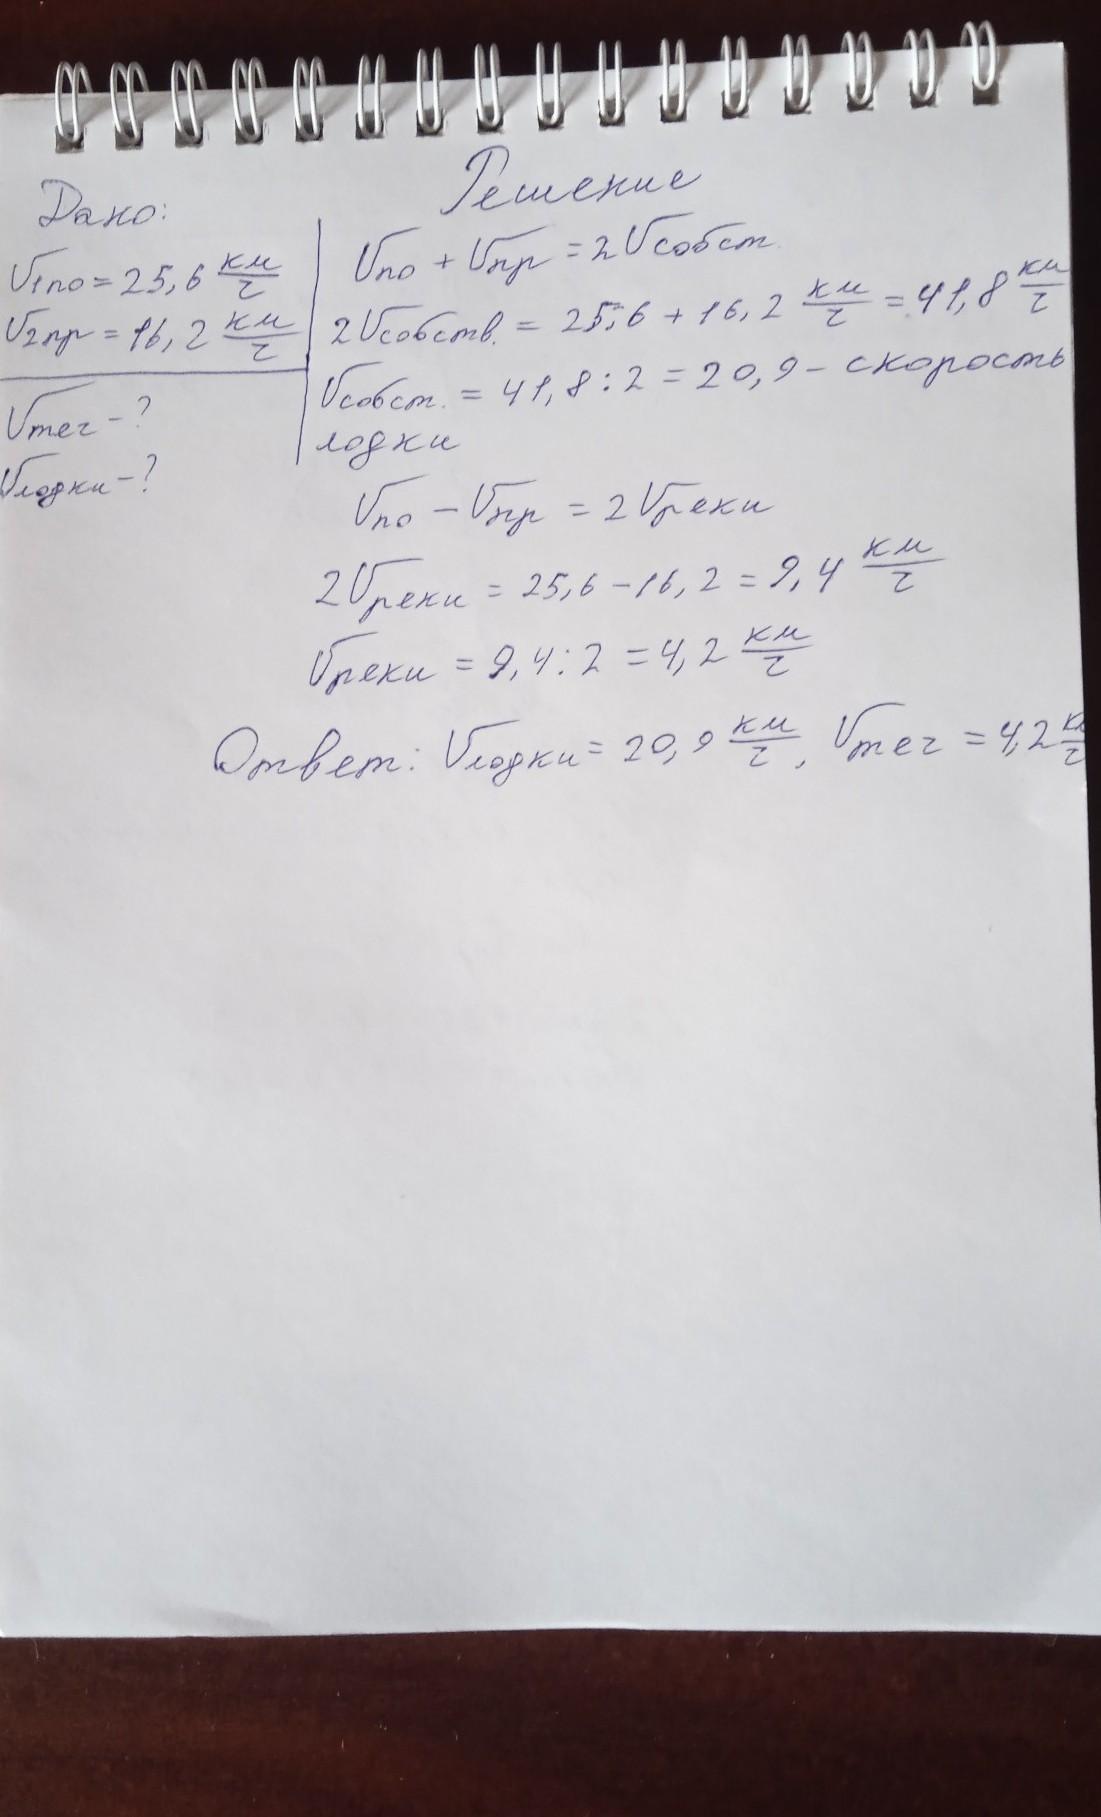 Дано:
V1по = 25,6 км/ч
V2пр = 16,2 км/ч
Vтеч - ?
Vлодки - ?
Решение
Vпо + Vпр = 2Vсобст.
2Vсобств. = 25,6 + 16,2 км/ч = 41,8 км/ч
Vсобст. = 41,8 : 2 = 20,9 - скорость
лодки
Vпо - Vпр = 2Vреки
2Vреки = 25,6 - 16,2 = 9,4 км/ч
Vреки = 9,4 : 2 = 4,2 км/ч
Ответ: Vлодки = 20,9 км/ч, Vтеч = 4,2 км/ч